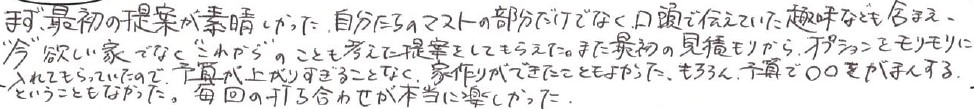 まず、最初の提案が素晴しかった。自分たちのマストの部分だけでなく、口頭で伝えていた趣味なども含まえ、
"今"欲しい家でなく"これから"のことも考えた提案をしてもらえた。また最初の見積もりから、オプションをモリモリに
入れてもらっていたので、予算が上がりすぎることなく、家作りができたこともよかった。もちろん、予算で〇〇をがまんする、
ということもなかった。毎回の打ち合わせが本当に楽しかった。